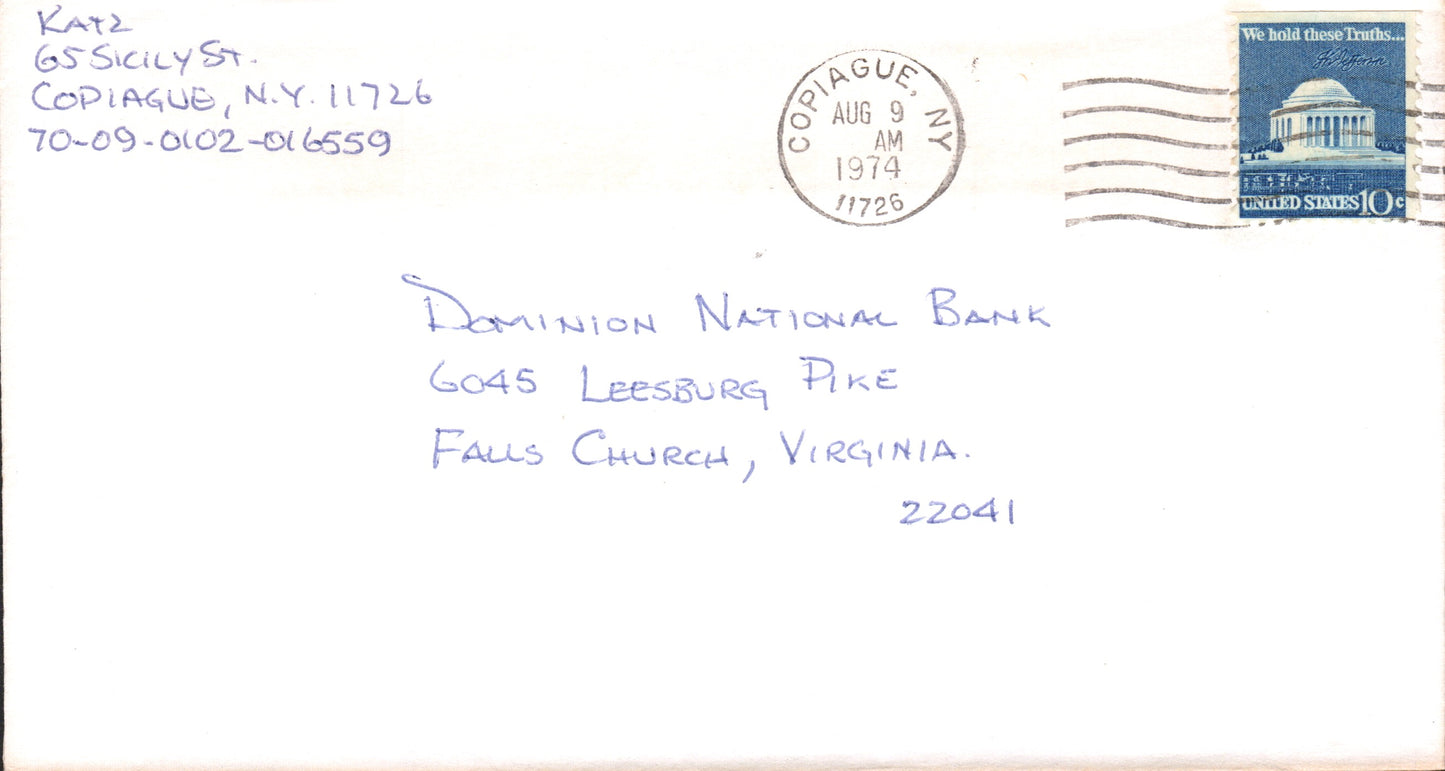 KATZ
65 SICILY ST.
COPIAGUE, N.Y. 11726
70-09-0102-016559
COPIAGUE, NY
AUG 9
AM
1974
11726
We hold these Truths...
Th Jefferson
UNITED STATES 10c
DOMINION NATIONAL BANK
6045 LEESBURG PIKE
FALLS CHURCH, VIRGINIA.
22041